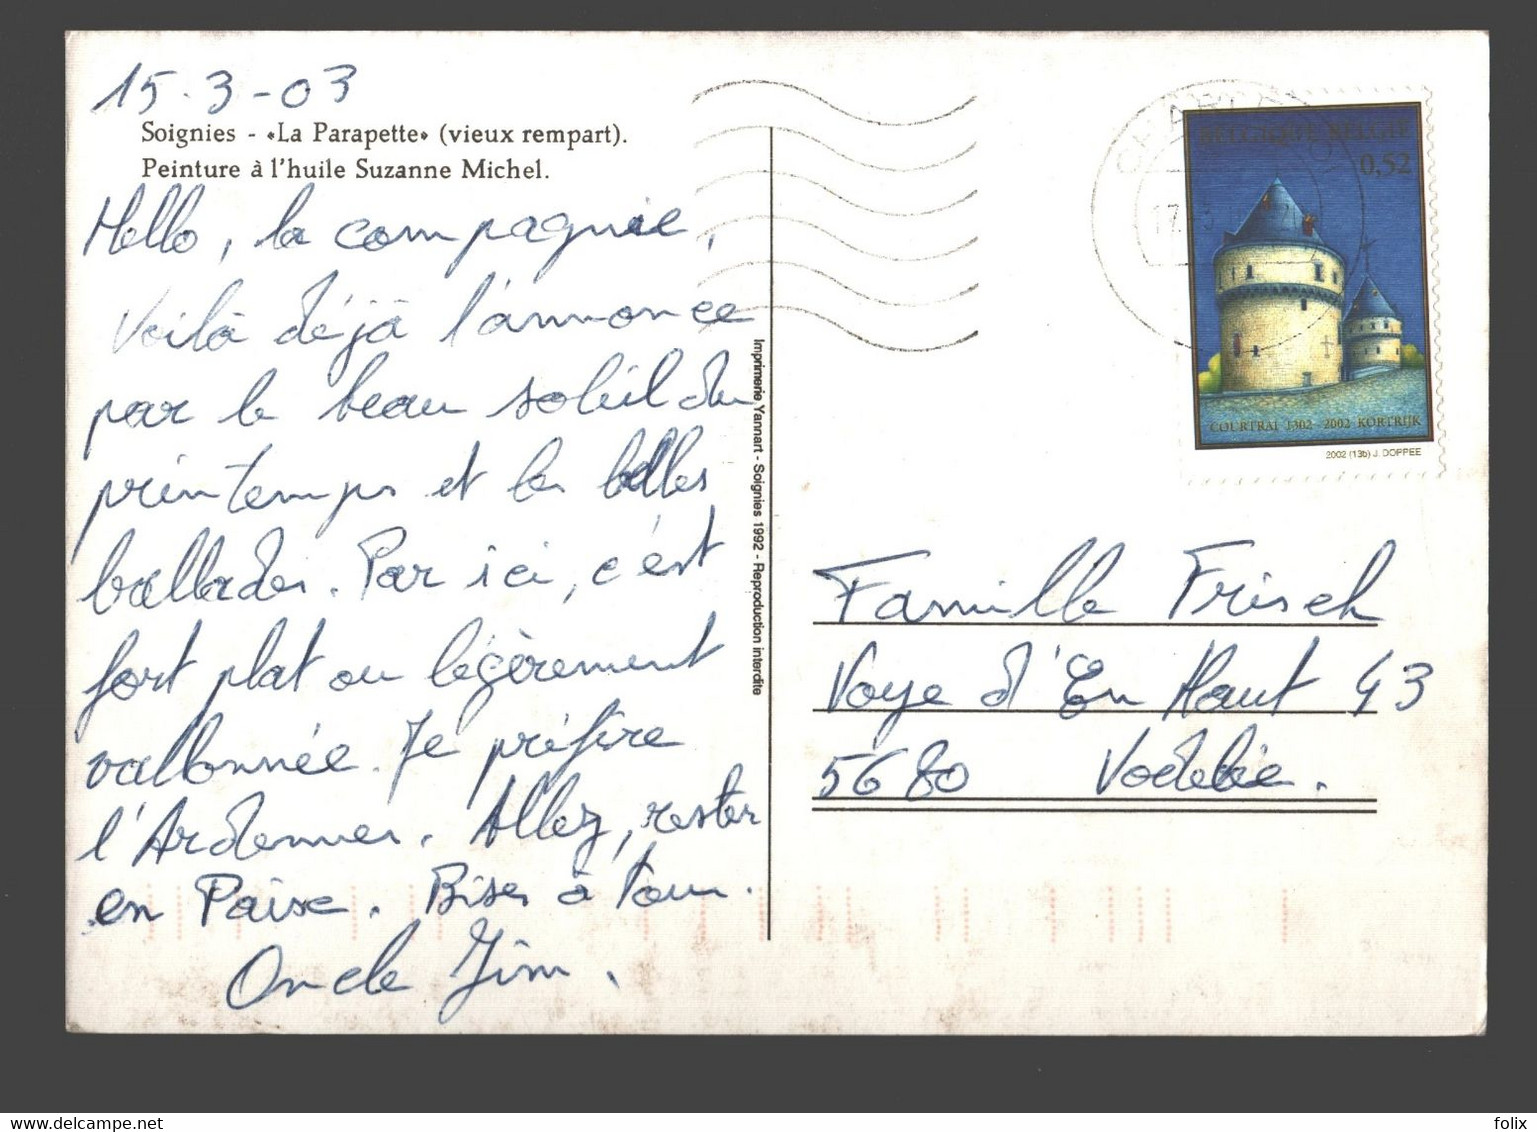 15.3-03
Soignies - «La Parapette» (vieux rempart).
Peinture à l'huile Suzanne Michel.
Hello, la compagnie,
Voilà déjà l'annonce
par le beau soleil du
printemps et les belles
ballades. Par ici, c'est
fort plat ou légèrement
vallonnée. Je préfère
l'Ardennes. Allez, rester
en Paix. Bises à tous.
Oncle Jim.
Imprimerie Yannart - Soignies 1992 - Reproduction interdite
BELGIQUE BELGIË
0,52
COURTRAI 1302 - 2002 KORTRIJK
2002 (13b) J. DOPPEE
Famille Frisch
Voye d'En Haut 43
5680 Vodelée.
folix
delcampe.net